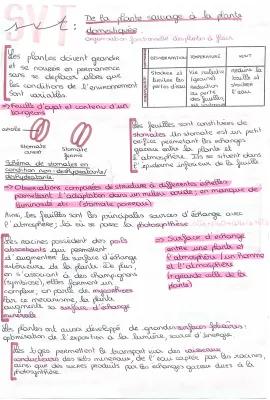 SVT
svt :
De la plante sauvage à la plante
domestiquée
Organisation fonctionnelle des plantes à fleurs
Les plantes doivent grandir
et se nourrir en permanence
sans se déplacer alors que
les conditions de l'environnement
sont variables.
DÉSHYDRATATION
TEMPÉRATURE
VENT
Stockage et
limiter les
pertes d'eau
Vie ralentie
réduction
de perte
des feuilles
réduire la
taille et
stocker
l'eau
→ Feuille d'oyat et contenu d'un
ostiole
Stomate
ouvert
Stomate
fermé
Schéma de stomates en
condition non-déshydratante/
déshydratante
Les feuilles sont constituées de
stomates. Un stomate est un petit
orifice permettant les échanges
gazeux entre la plante et
l'atmosphère. Ils se situent dans
l'épiderme inférieur de la feuille
→ Observations composées de structure à différentes échelles
permettant l'adaptation dans un milieu aride, en manque de
luminosité etc → (stomate poireau)
Ainsi, les feuilles sont les principales surfaces d'échange avec
l'atmosphère, là où se passe la photosynthèse
Les racines possèdent des poils
absorbants qui permettent
d'augmenter la surface d'échange
souterraine de la plante. De plus,
en s'associant à des champignons
(symbiose), elles forment un
complexe, on parle de mycorhizes
Par ce mécanisme, la plante
augmente sa surface d'échange
minérale
→ Surface d'échange
entre une plante et
l'atmosphère / un homme
et l'atmosphère
(grande celle de la
plante)
Les plantes ont aussi développé de grandes surfaces foliaires :
optimisation de l'exposition à la lumière, source d'énergie.
Les tiges permettent le transport via des vaisseaux
conducteurs des sels minéraux, de l'eau captée par les racines,
ainsi que des sucres produits par les échanges gazeux dues à la
photosynthèse.